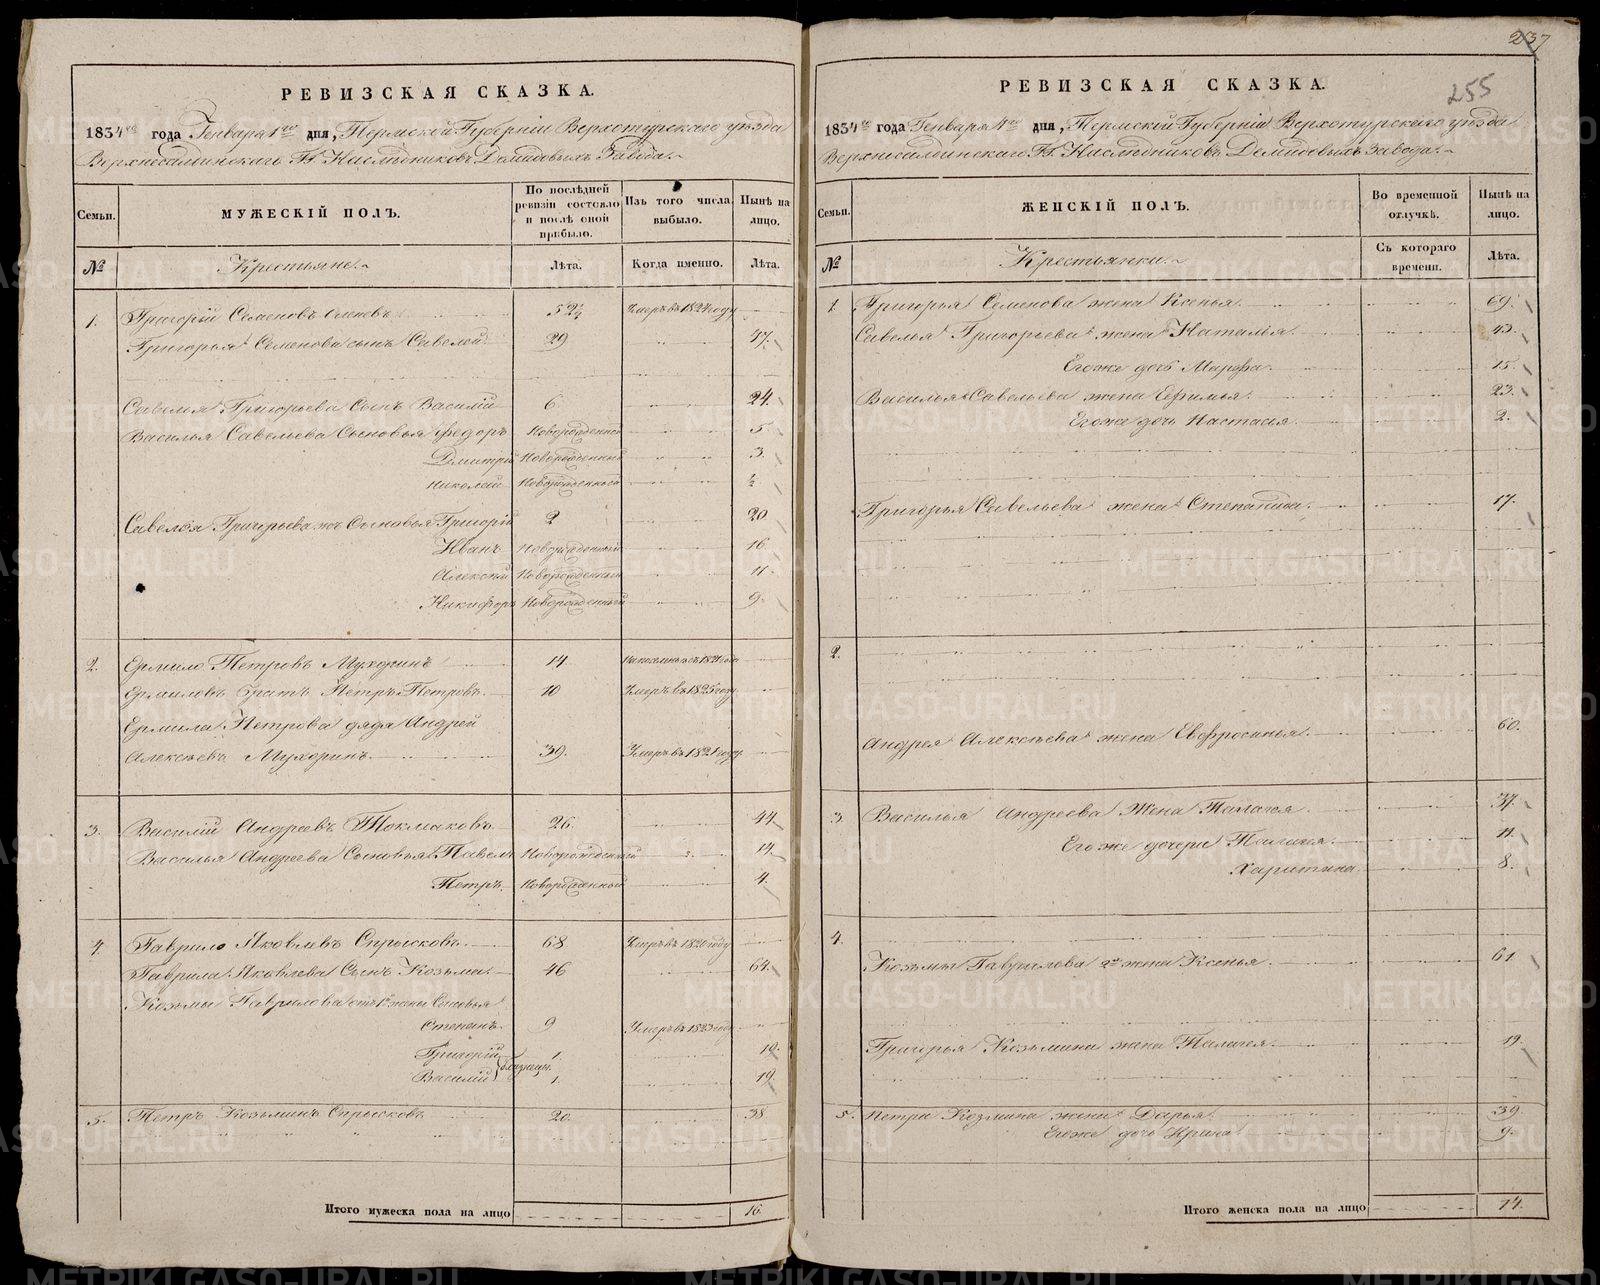 237
255
РЕВИЗСКАЯ СКАЗКА.
1834го года Генваря 1го дня, Пермской Губернiи Верхотурскаго уѣзда
Верхнесалдинскаго Гг. Наслѣдниковъ Демидовыхъ Завода.
Семьи. МУЖЕСКIЙ ПОЛЪ. По послѣдней ревизiи состояло и послѣ оной прибыло. Изъ того числа выбыло. Нынѣ на лицо.
№ Крестьяне. Лѣта. Когда именно. Лѣта.
1. Григорiй Семеновъ 52½ Умеръ въ 1824 году
Григорья Семенова сынъ Савелей 29 47.
Савелья Григорьева Сынъ Василiй 6. 24.
Василья Савельева Сыновья Федоръ Новорожденной 5
Дмитрiй Новорожденный 3.
Николай Новорожденный ½
Савелья Григорьева жъ Сыновья Григорiй 2 20
Иванъ Новорожденный 16
Алексѣй Новорожденный 11.
Никифоръ Новорожденный 9.
2. Ермило Петровъ Мухоринъ 14
Ермиловъ братъ Петръ Петровъ. 10 Умеръ въ 1825 году
Ермила Петрова дядя Андрей
Алексѣевъ Мухоринъ. 39. Умеръ въ 1821 году
3. Василiй Андреевъ Токмаковъ 26. 44.
Василья Андреева Сыновья Павелъ Новорожденный 14.
Петръ. Новорожденный 4.
4. Гаврило Яковлевъ Спрысковъ. 68 Умеръ въ 1820 году
Гаврила Яковлева Сынъ Козьма. 46 64.
Козьмы Гаврилова отъ 1й жены Сыновья
Степанъ. 9 Умеръ въ 1823 году
Григорiй 1. 19
Василiй близнецы. 1. 19
5. Петръ Козьминъ Спрысковъ 20. 38
Итого мужеска пола на лицо 16.
РЕВИЗСКАЯ СКАЗКА.
1834го года Генваря 1го дня, Пермскiй Губернiи Верхотурскаго уѣзда
Верхнесалдинскаго Гг. Наслѣдниковъ Демидовыхъ Завода.
Семьи. ЖЕНСКIЙ ПОЛЪ. Во временной отлучкѣ. Нынѣ на лицо.
№ Крестьянки. Съ котораго времени. Лѣта.
1. Григорья Семенова жена Ксенья. 69.
Савелья Григорьева жена Наталья. 43.
Егоже дочь Марфа. 15.
Василья Савельева жена Ефимья. 23.
Егоже дочь Настасья. 2.
Григорья Савельева жена Степанида. 17.
2.
Андрея Алексѣева жена Евфросинья. 60.
3. Василья Андреева Жена Палагея 37.
Егоже дочери Палагея. 11.
Харитина 8.
4.
Козьмы Гаврилова 2я жена Ксенья. 61
Григорья Козьмина жена Палагея. 19
5. Петра Козмина жена Дарья 39
Егоже дочь Ирина 9.
Итого женска пола на лицо 14.
METRIKI.GASO-URAL.RU